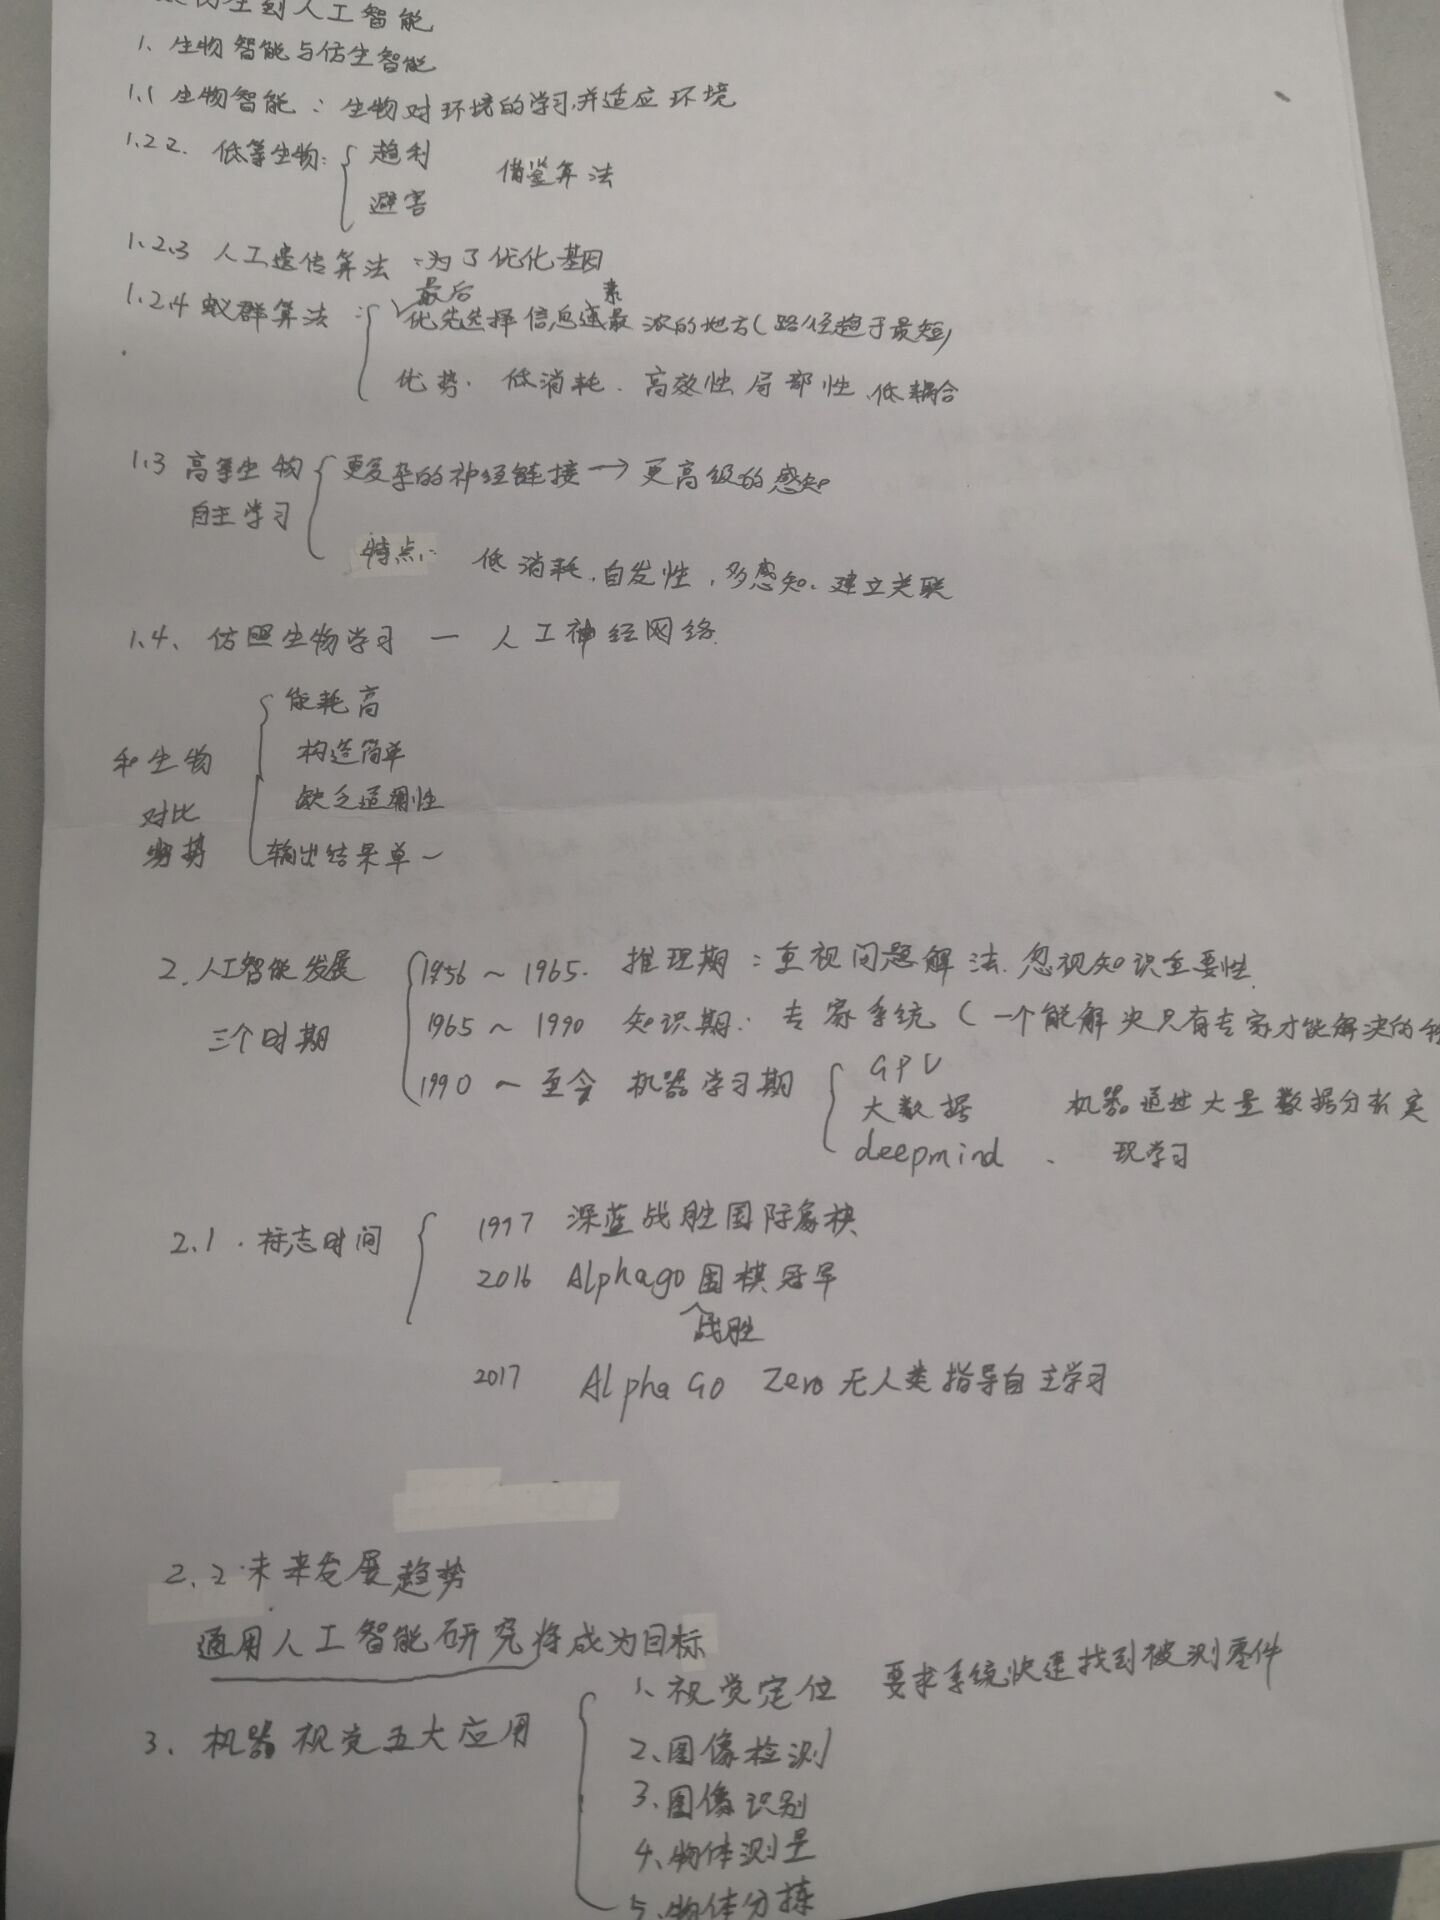 仿生到人工智能
1、生物智能与仿生智能
1.1 生物智能：生物对环境的学习并适应环境
1.2.2. 低等生物：趋利 借鉴算法
避害
1.2.3 人工遗传算法：为了优化基因
1.2.4 蚁群算法：最后优先选择信息素最浓的地方（路径趋于最短）
优势、低消耗、高效性 局部性、低耦合
1.3 高等生物 更复杂的神经链接→更高级的感知
自主学习
特点： 低消耗、自发性、多感知、建立关联
1.4、仿照生物学习 — 人工神经网络
能耗高
和生物 构造简单
对比 缺乏适用性
劣势 输出结果单一
2.人工智能发展 1956～1965. 推理期：重视问题解法.忽视知识重要性.
三个时期 1965～1990 知识期：专家系统（一个能解决只有专家才能解决的
1990～至今 机器学习期 GPU
大数据 机器通过大量数据分析实
deepmind、 现学习
2.1.标志时间 1997 深蓝战胜国际象棋
2016 Alphago战胜围棋冠军
2017 AlphaGo Zero 无人类指导自主学习
2.2.未来发展趋势
通用人工智能研究将成为目标
3、机器视觉五大应用 1、视觉定位 要求系统快速找到被测零件
2、图像检测
3、图像识别
4、物体测量
5、物体分拣